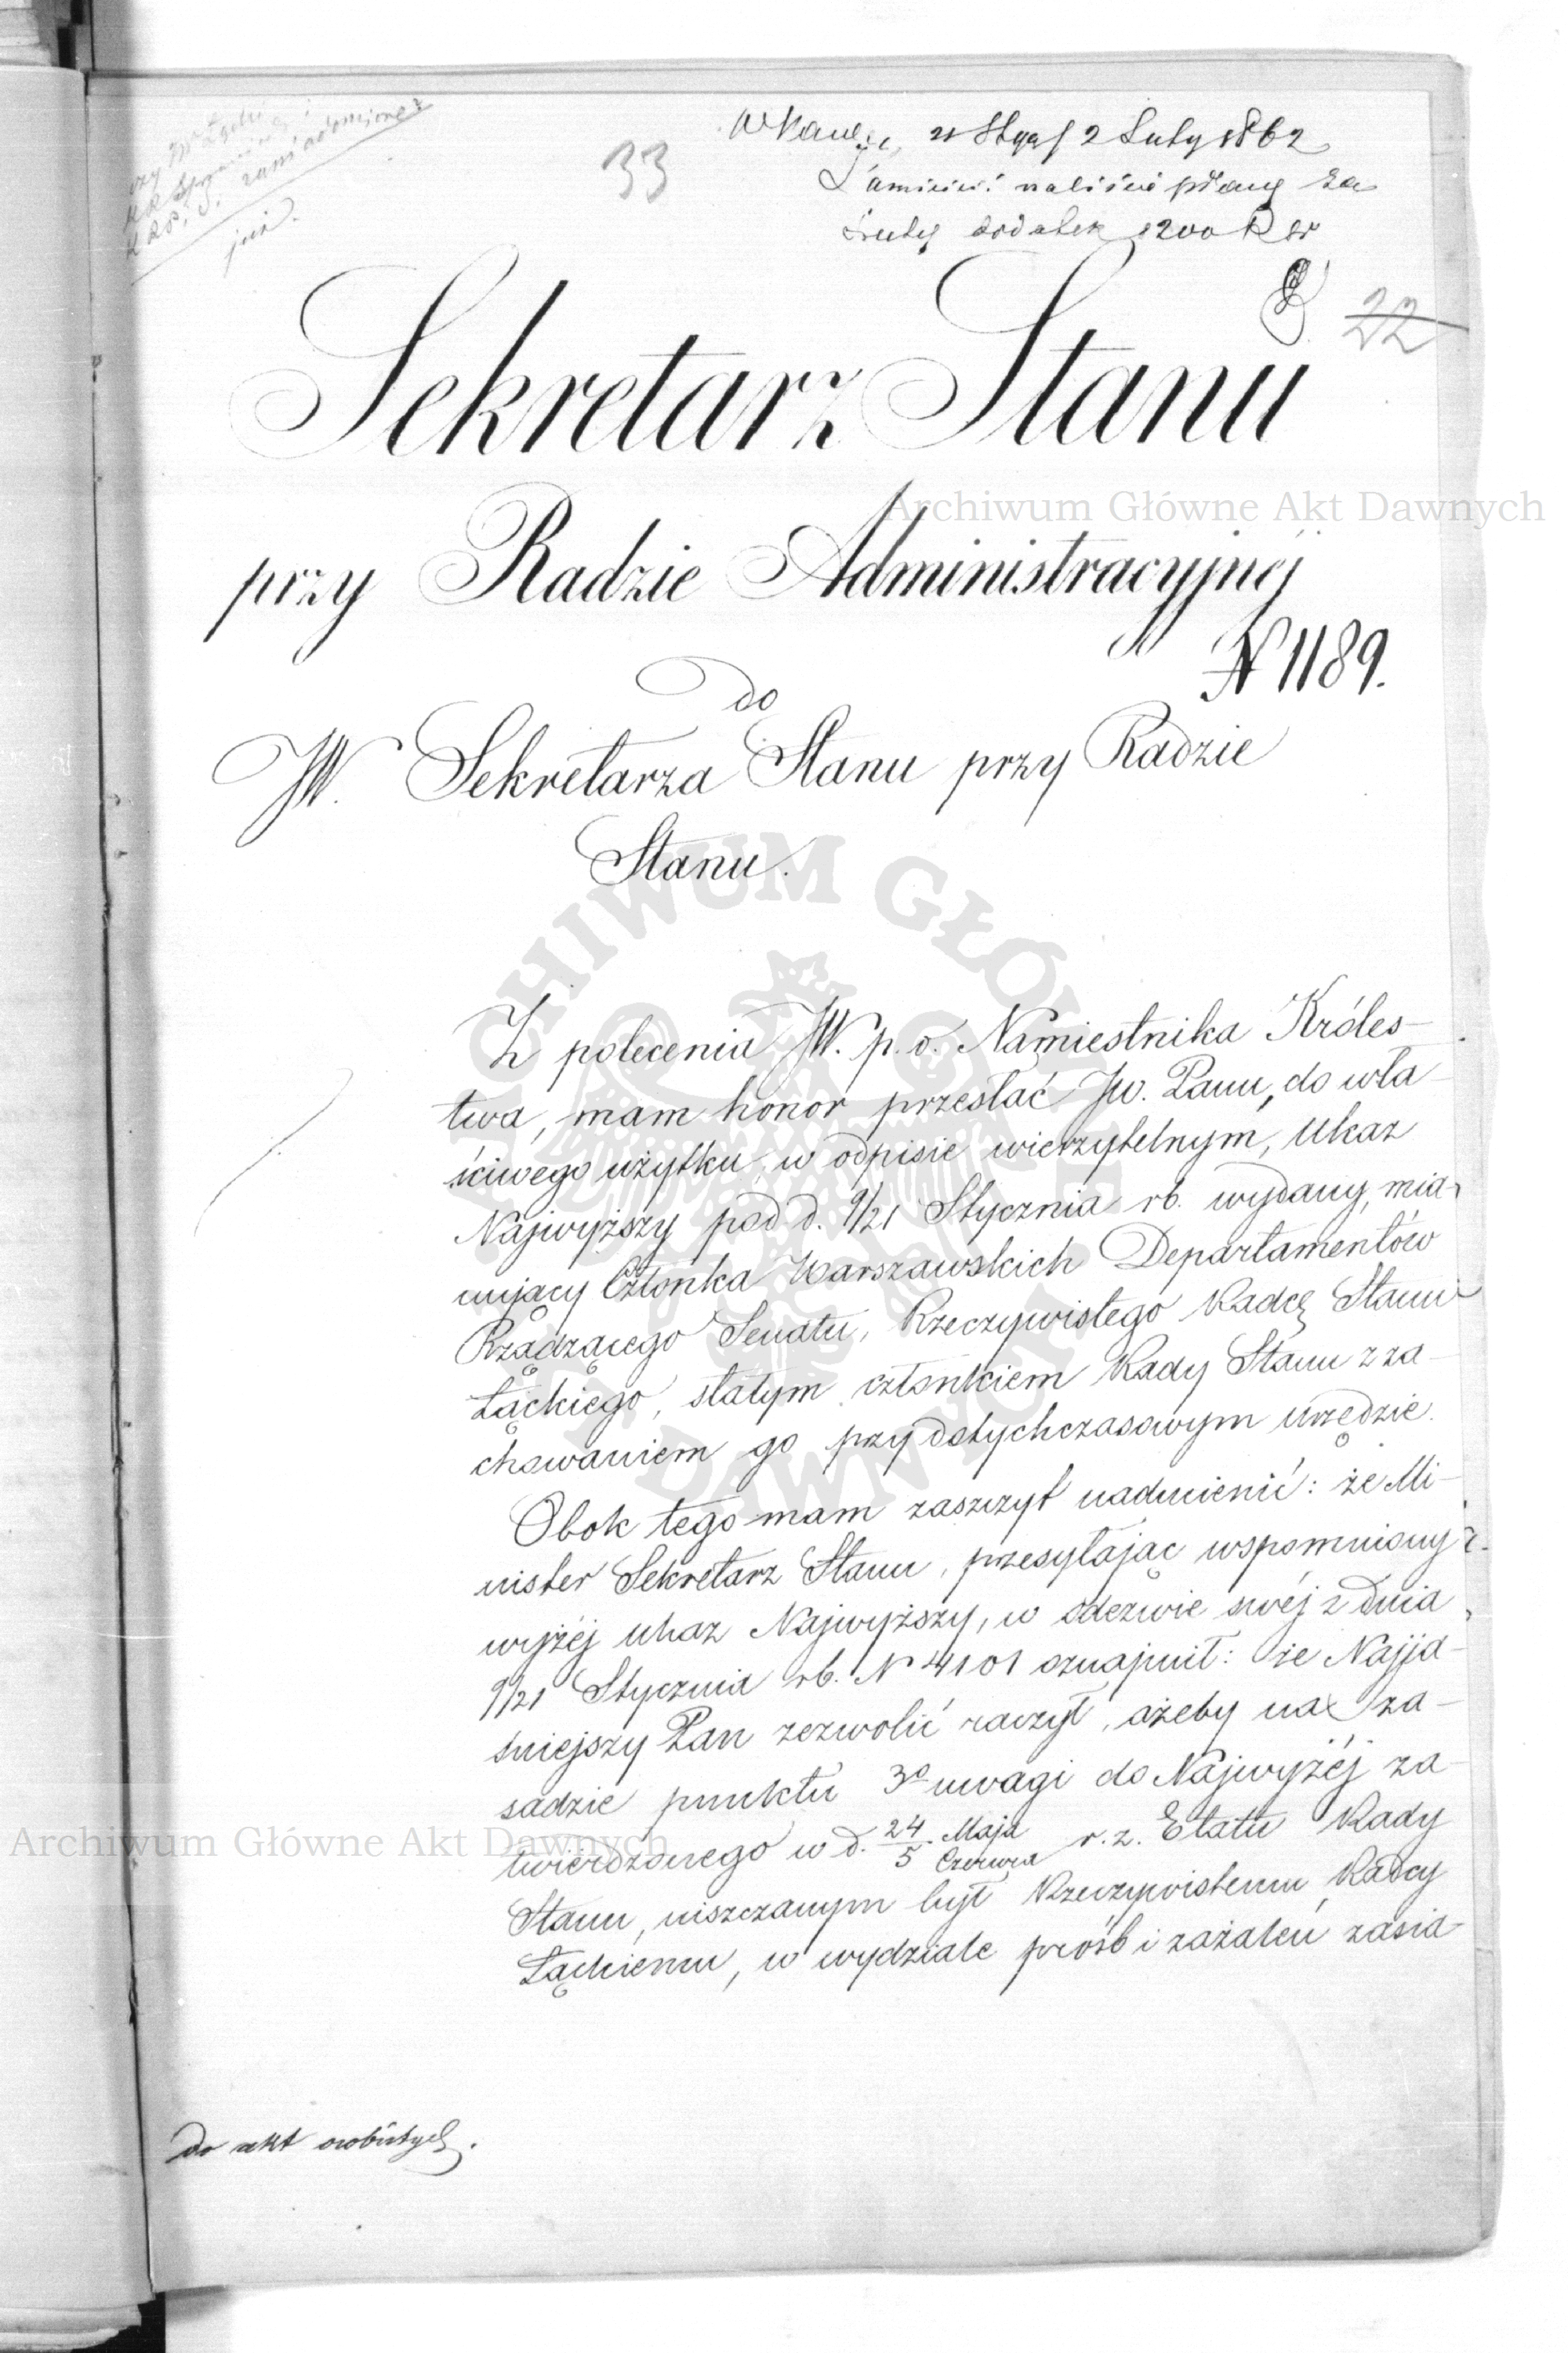 33
21 Stycz / 2 Luty 1862
Zamieścić na liście płacy za
Luty dodatek 1200 R sr
22
już.
Sekretarz Stanu
przy Radzie Administracyjnéj
N 1189.
do
JW. Sekretarza Stanu przy Radzie
Stanu.
Z polecenia JW. p. o. Namiestnika Króles-
twa, mam honor przesłać JW. Panu, do wła-
ściwego użytku, w odpisie wierzytelnym, Ukaz
Najwyższy pod d. 9/21 Stycznia rb. wydany, mia-
nujący Członka Warszawskich Departamentów
Rządzącego Senatu, Rzeczywistego Radcę Stanu
Łąckiego, stałym członkiem Rady Stanu z za-
chowaniem go przy dotychczasowym urzędzie.
Obok tego mam zaszczyt nadmienić: że Mi-
nister Sekretarz Stanu, przesyłając wspomniony
wyżéj ukaz Najwyższy, w odezwie swéj z dnia
9/21 Stycznia rb. N 4101 oznajmił: że Najja-
śniejszy Pan zezwolić raczył, ażeby na za-
sadzie punktu 3o uwagi do Najwyżéj za-
twierdzonego w d. 24 Maja / 5 Czerwca r. z. Etatu Rady
Stanu, uiszczanym był Rzeczywistemu Radcy
Łąckiemu, w wydziale próśb i zażaleń zasia-
do akt osobistych.
Archiwum Główne Akt Dawnych
Archiwum Główne Akt Dawnych
ARCHIWUM GŁÓWNE AKT DAWNYCH